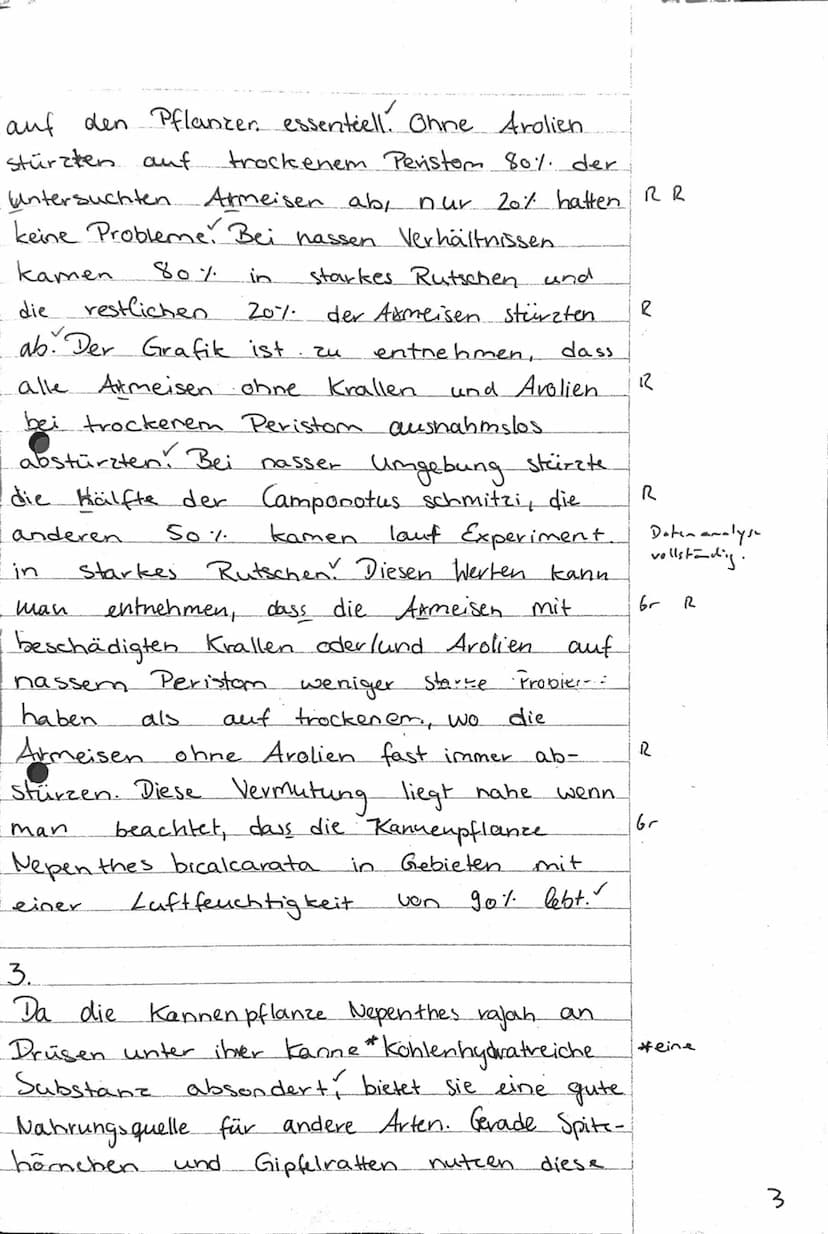 auf den Pflanzen essentiell. Ohne Arolien
stürzten auf trockenem Peristom 80% der
Untersuchten Ameisen ab, nur 20% hatten R R
keine Probleme. Bei nassen Verhältnissen
kamen 80% in starkes Rutschen und
die restlichen 20% der Ameisen stürzten R
ab. Der Grafik ist zu entnehmen, dass
alle Ameisen ohne Krallen und Arolien R
bei trockenem Peristom ausnahmslos
abstürzten. Bei nasser Umgebung stürzte
die Hälfte der Camponotus schmitzi, die R
anderen 50% kamen lauf Experiment Datenanalyse
vollständig.
in starkes Rutschen. Diesen Werten kann
man entnehmen, dass die Ameisen mit Gr R
beschädigten Krallen oder/und Arolien auf
nassem Peristom weniger starke
haben als auf trockenem, wo die
Ameisen ohne Arolien fast immer ab- R
stürzen. Diese Vermutung liegt nahe wenn
man beachtet, dass die Kannenpflanze Gr
Nepenthes bicalcarata in Gebieten mit
einer Luftfeuchtigkeit von 90% lebt.
3.
Da die Kannenpflanze Nepenthes rajah an
Drüsen unter ihrer Kanne * Kohlenhydratreiche *eine
Substanz absondert, bietet sie eine gute
Nahrungsquelle für andere Arten. Gerade Spitz-
hörnchen und Gipfelratten nutzen diese
3